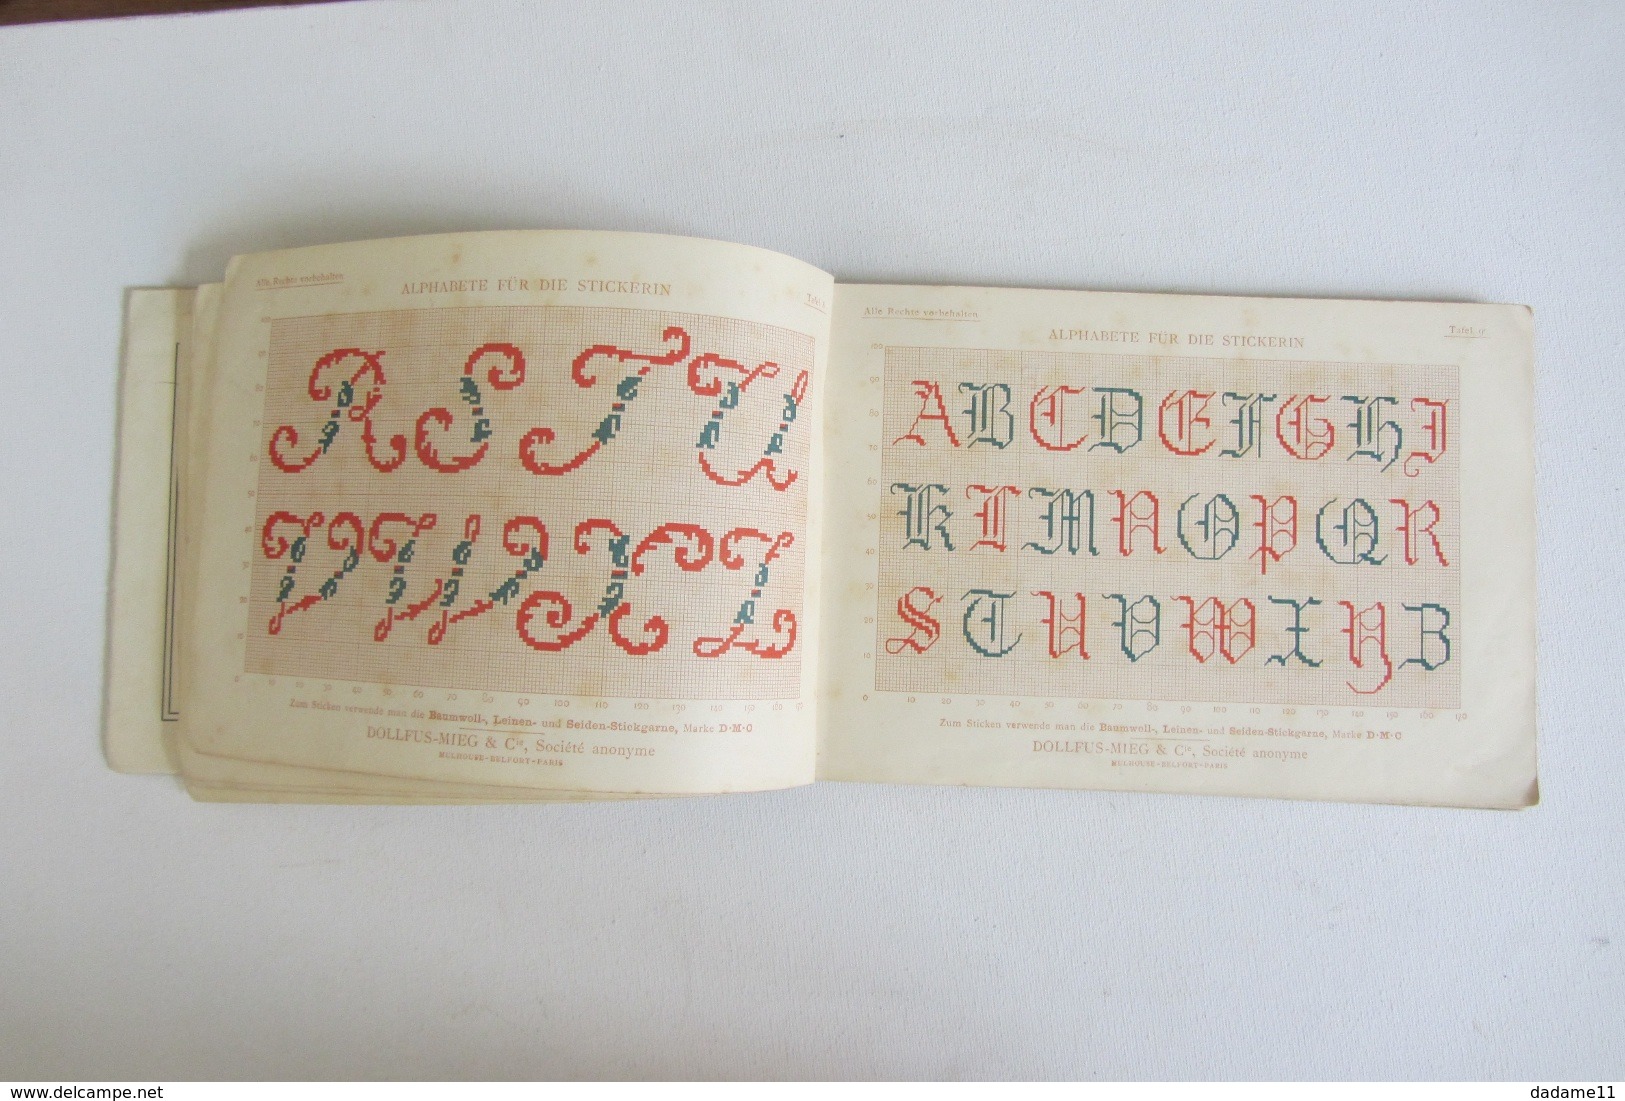 Alle Rechte vorbehalten.
ALPHABETE FÜR DIE STICKERIN
R S T U
V W X Z
100
90
80
70
60
50
40
30
10
10 20 30 40 50 60 70 80 90 100 110 120 130 140 150 160 170
Zum Sticken verwende man die Baumwoll-, Leinen- und Seiden-Stickgarne, Marke D·M·C
DOLLFUS-MIEG & Cie, Société anonyme
MULHOUSE-BELFORT-PARIS
Alle Rechte vorbehalten.
Tafel
ALPHABETE FÜR DIE STICKERIN
A B C D E F G H I
K L M N O P Q R
S T U V W X Y Z
100
90
80
70
60
50
40
30
20
10
0
10 20 30 40 50 60 70 80 90 100 110 120 130 140 150 160 170
Zum Sticken verwende man die Baumwoll-, Leinen- und Seiden-Stickgarne, Marke D·M·C
DOLLFUS-MIEG & Cie, Société anonyme
MULHOUSE-BELFORT-PARIS
www.delcampe.net
dadame11